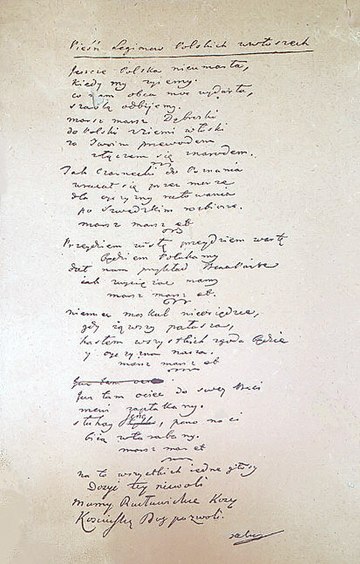 Pieśń Legionów Polskich we włoszech
Jeszcze Polska nieumarła,
kiedy my żyiemy.
co nam obca moc wydarła,
szablą odbijemy.
marsz marsz Dąbroski
do Polski z ziemi włoski
za Twoim przewodem
złączem się znarodem.
Jak Czarnecki do Poznania
wracał się przez morze
dla oyczyzny ratowania
po szwedzkim rozbiorze.
marsz marsz et
Przejdziem wisłę przejdziem wartę
będziem Polakamy
dał nam przykład Bonaparte
jak zwyciężać mamy
marsz marsz et.
niemiec moskal nieosiędzie,
gdy jąwszy pałasza,
hasłem wszystkich zgoda będzie
y oyczyzna nasza.
marsz marsz et
Już tam ociec do swey Basi
mówi zapłakany.
słuchay jeno, pono nasi
biią w tarabany.
marsz mar et
na to wszystkich iedne głosy
Dosyć tey niewoli
mamy Racławickie Kosy
Kościuszkę Bóg pozwoli.